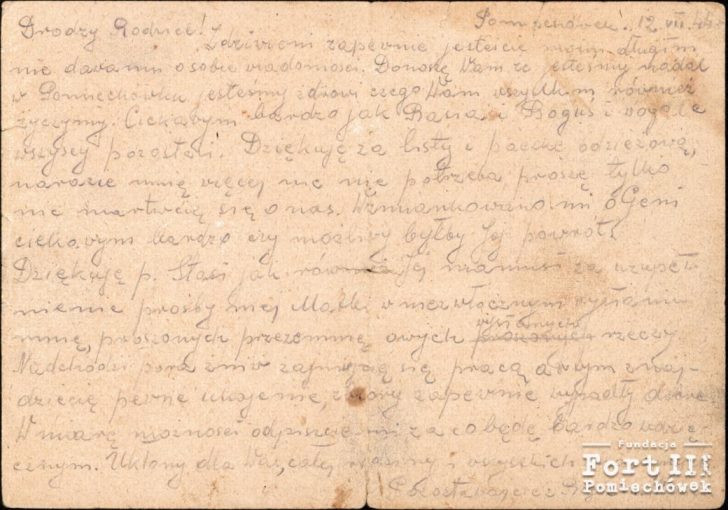 Drodzy Rodzice! Pomiechówek, 12.VII.44
Zdziwieni zapewnie jesteście moim długim
nie dawaniu o sobie wiadomości. Donoszę Wam że jesteśmy nadal
w Pomiechówku jesteśmy zdrowi czego Wam wszystkim również
życzymy. Ciekawym bardzo jak Basia i Boguś i wogóle
wszyscy pozostali. Dziękuję za listy i paczkę odzieżową,
narazie mnie więcej nic nie potrzeba proszę tylko
nie martwcie się o nas. Wzmiankowano mi o Geni
ciekawym bardzo czy możliwy byłby Jej powrót.
Dziękuję p. Stasi jak również Jej mamusi za uzupeł-
nienie prośby mej Matki w niezwłocznym wysłaniu
mnie, proszonych przezemnie owych wysłanych rzeczy
Nadchodzi pora żniw zajmując się pracą
dziecie pewne ukojenie, zbiory zapewnie wypadły dobrze
W miarę możności odpiszcie mi za co będę bardzo wdzię-
cznym. Ukłony dla Was, całej rodziny i wszystkich
Fundacja
Fort III
Pomiechówek